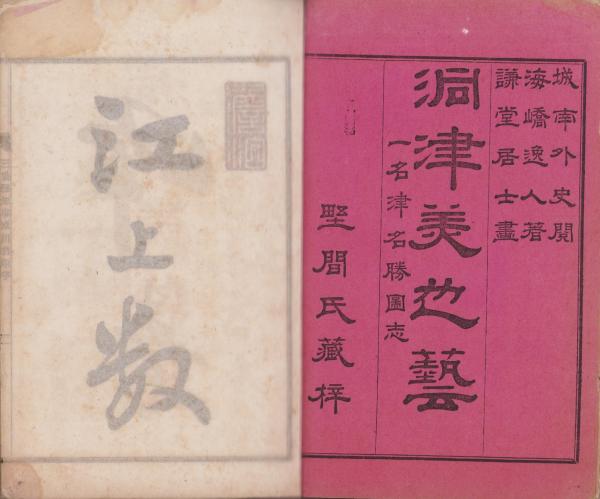 城南外史閲
海嶠逸人著
謙堂居士畫
洞津美也藝
一名津名勝圖志
野間氏藏梓
江上数